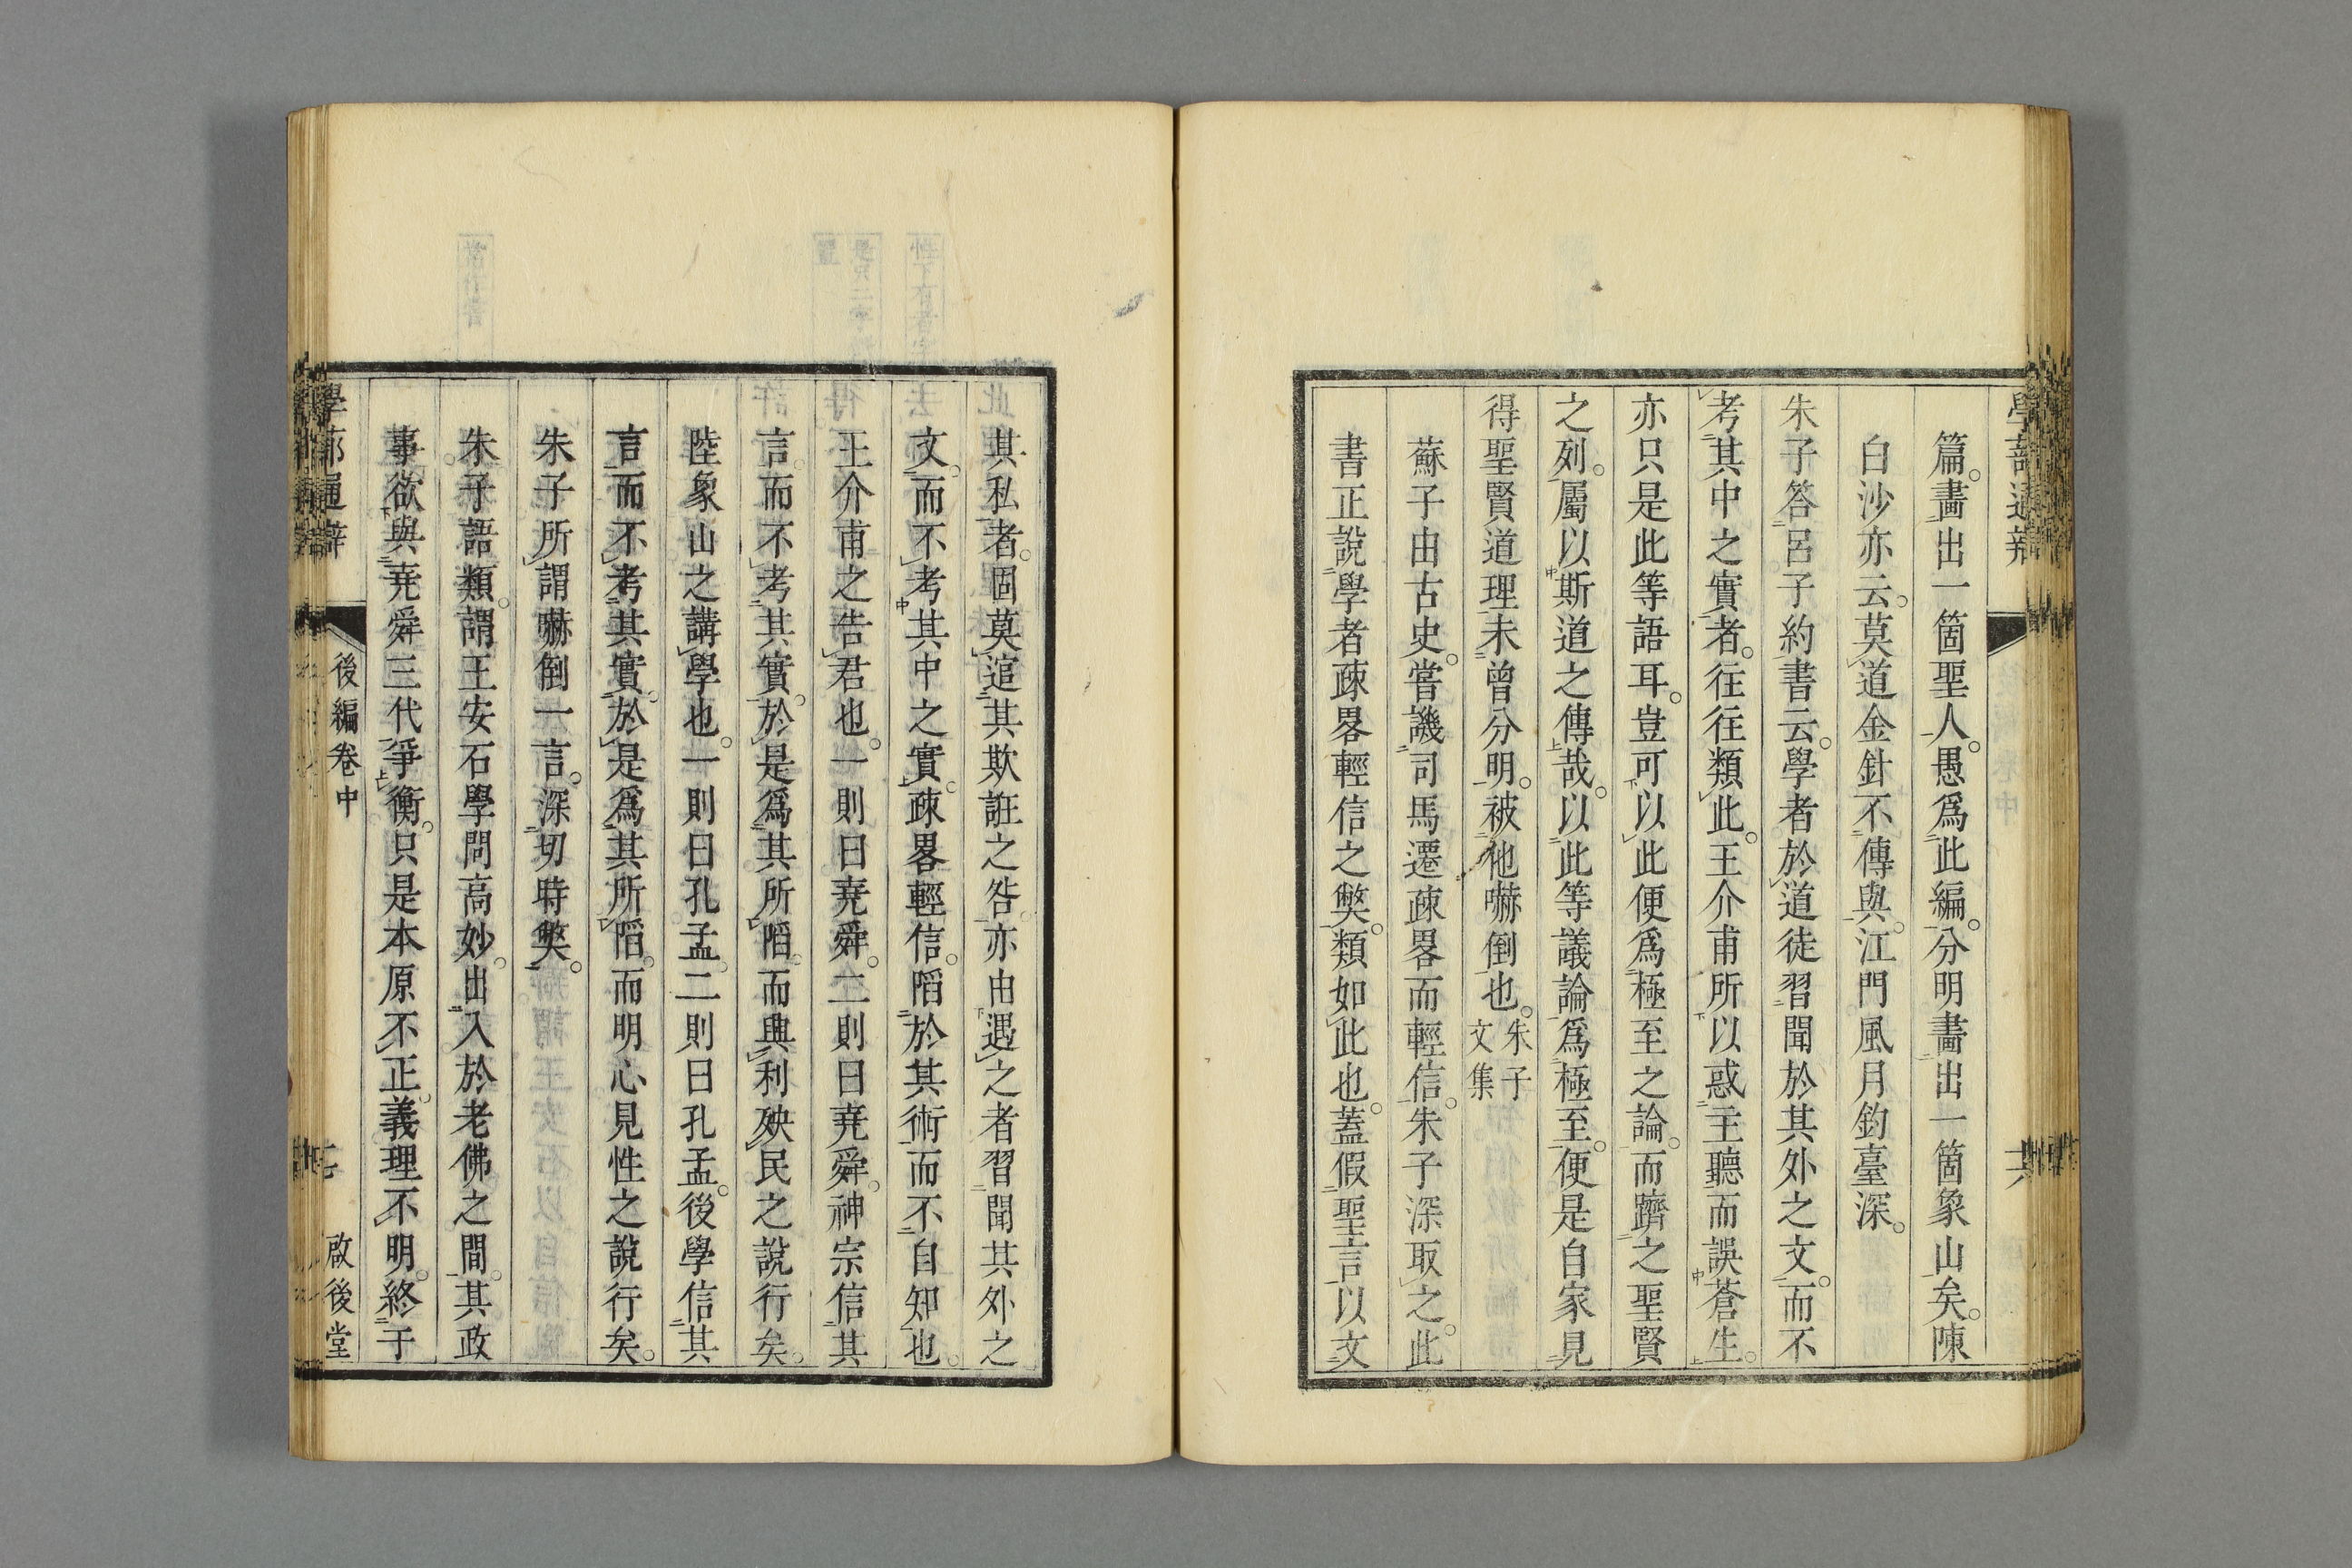 篇。畵出一箇聖人。愚爲此編。分明畵出一箇象山矣。陳
白沙亦云。莫道金針不傳與。江門風月釣臺深。
朱子答呂子約書云。學者於道徒習聞於其外之文。而不
考其中之實者。往往類此。王介甫所以惑主聽而誤蒼生。
亦只是此等語耳。豈可以此便爲極至之論。而躋之聖賢
之列。屬以斯道之傳哉。以此等議論爲極至。便是自家見
得聖賢道理未曾分明。被他嚇倒也。朱子文集
蘇子由古史。嘗譏司馬遷疎畧而輕信。朱子深取之。此
書正說學者疎畧輕信之獘。類如此也。蓋假聖言以文
其私者。固莫逭其欺誑之咎。亦由遇之者習聞其外之
文。而不考其中之實。疎畧輕信。陷於其術而不自知也。
王介甫之告君也。一則曰堯舜。二則曰堯舜。神宗信其
言。而不考其實。於是爲其所陷。而興利殃民之說行矣。
陸象山之講學也。一則曰孔孟。二則曰孔孟。後學信其
言而不考其實。於是爲其所陷。而明心見性之說行矣。
朱子所謂嚇倒一言。深切時獘。
朱子語類。謂王安石學問高妙。出入於老佛之間。其政
事欲與堯舜三代爭衡。只是本原不正。義理不明。終于
後編卷中
啟後堂